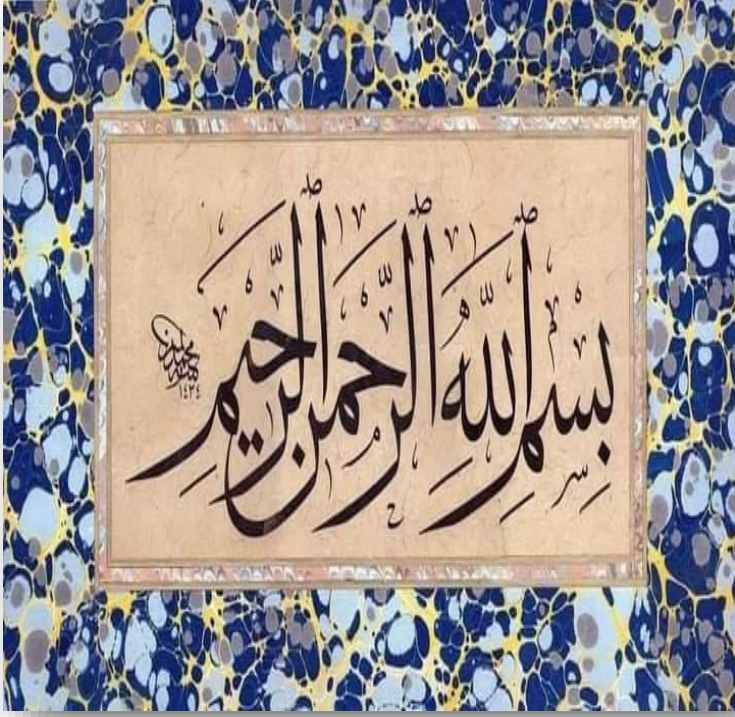 بِسْمِ ٱللَّهِ ٱلرَّحْمٰنِ ٱلرَّحِيمِ
١٤٢٤